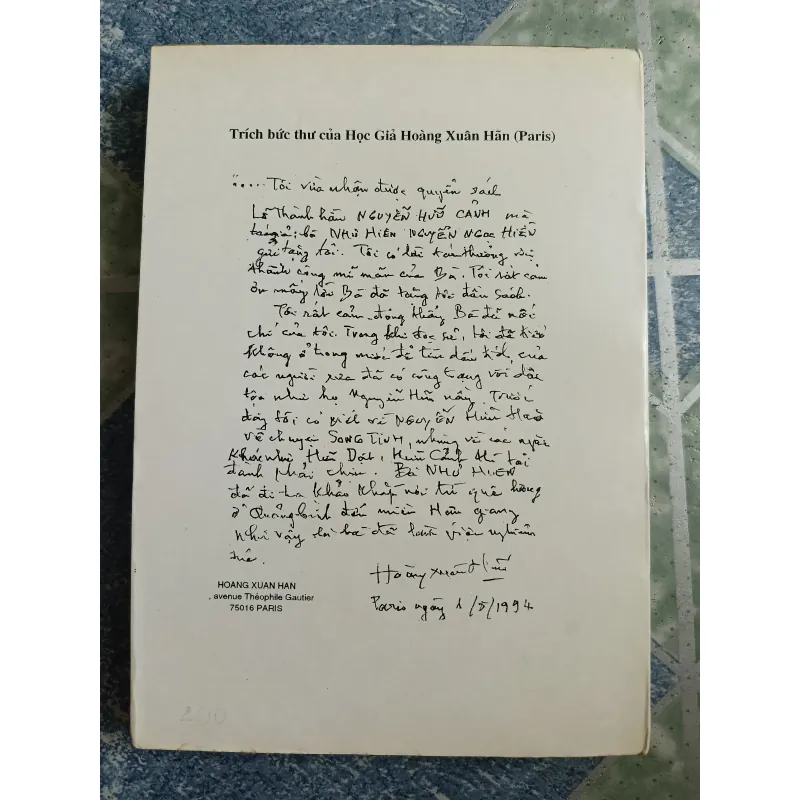 Trích bức thư của Học Giả Hoàng Xuân Hãn (Paris)
"..... Tôi vừa nhận được quyển sách
Lễ Thành hầu NGUYỄN HỮU CẢNH mà
tác giả: bà NHƯ HIÊN NGUYỄN NGỌC HIỀN
gửi tặng tôi. Tôi có lời tán thưởng với
thành công mĩ mãn của Bà. Tôi rất cảm
ơn mấy lần Bà đã tặng tôi đầu sách.
Tôi rất cảm động thấy Bà đã nối
chí của tôi. Trong khi đọc sử, tôi đã tiếc
không ở trong nước để tìm dấu tích của
các người xưa đã có công trạng với dân
tộc như họ Nguyễn Hữu nầy. Trước
đây tôi có viết về NGUYỄN Hữu Hào
về chuyện SONG TINH, nhưng về các ngài
khác như Hữu Dật, Hữu Cảnh thì tôi
đành phải chịu. Bà NHƯ HIÊN
đã đi tra khảo khắp nơi từ quê hương
ở Quảng bình đến miền Hậu giang
như vậy thì bà đã
Hoàng xuân Hãn
Paris ngày 1/5/1994
HOANG XUAN HAN
, avenue Théophile Gautier
75016 PARIS
200